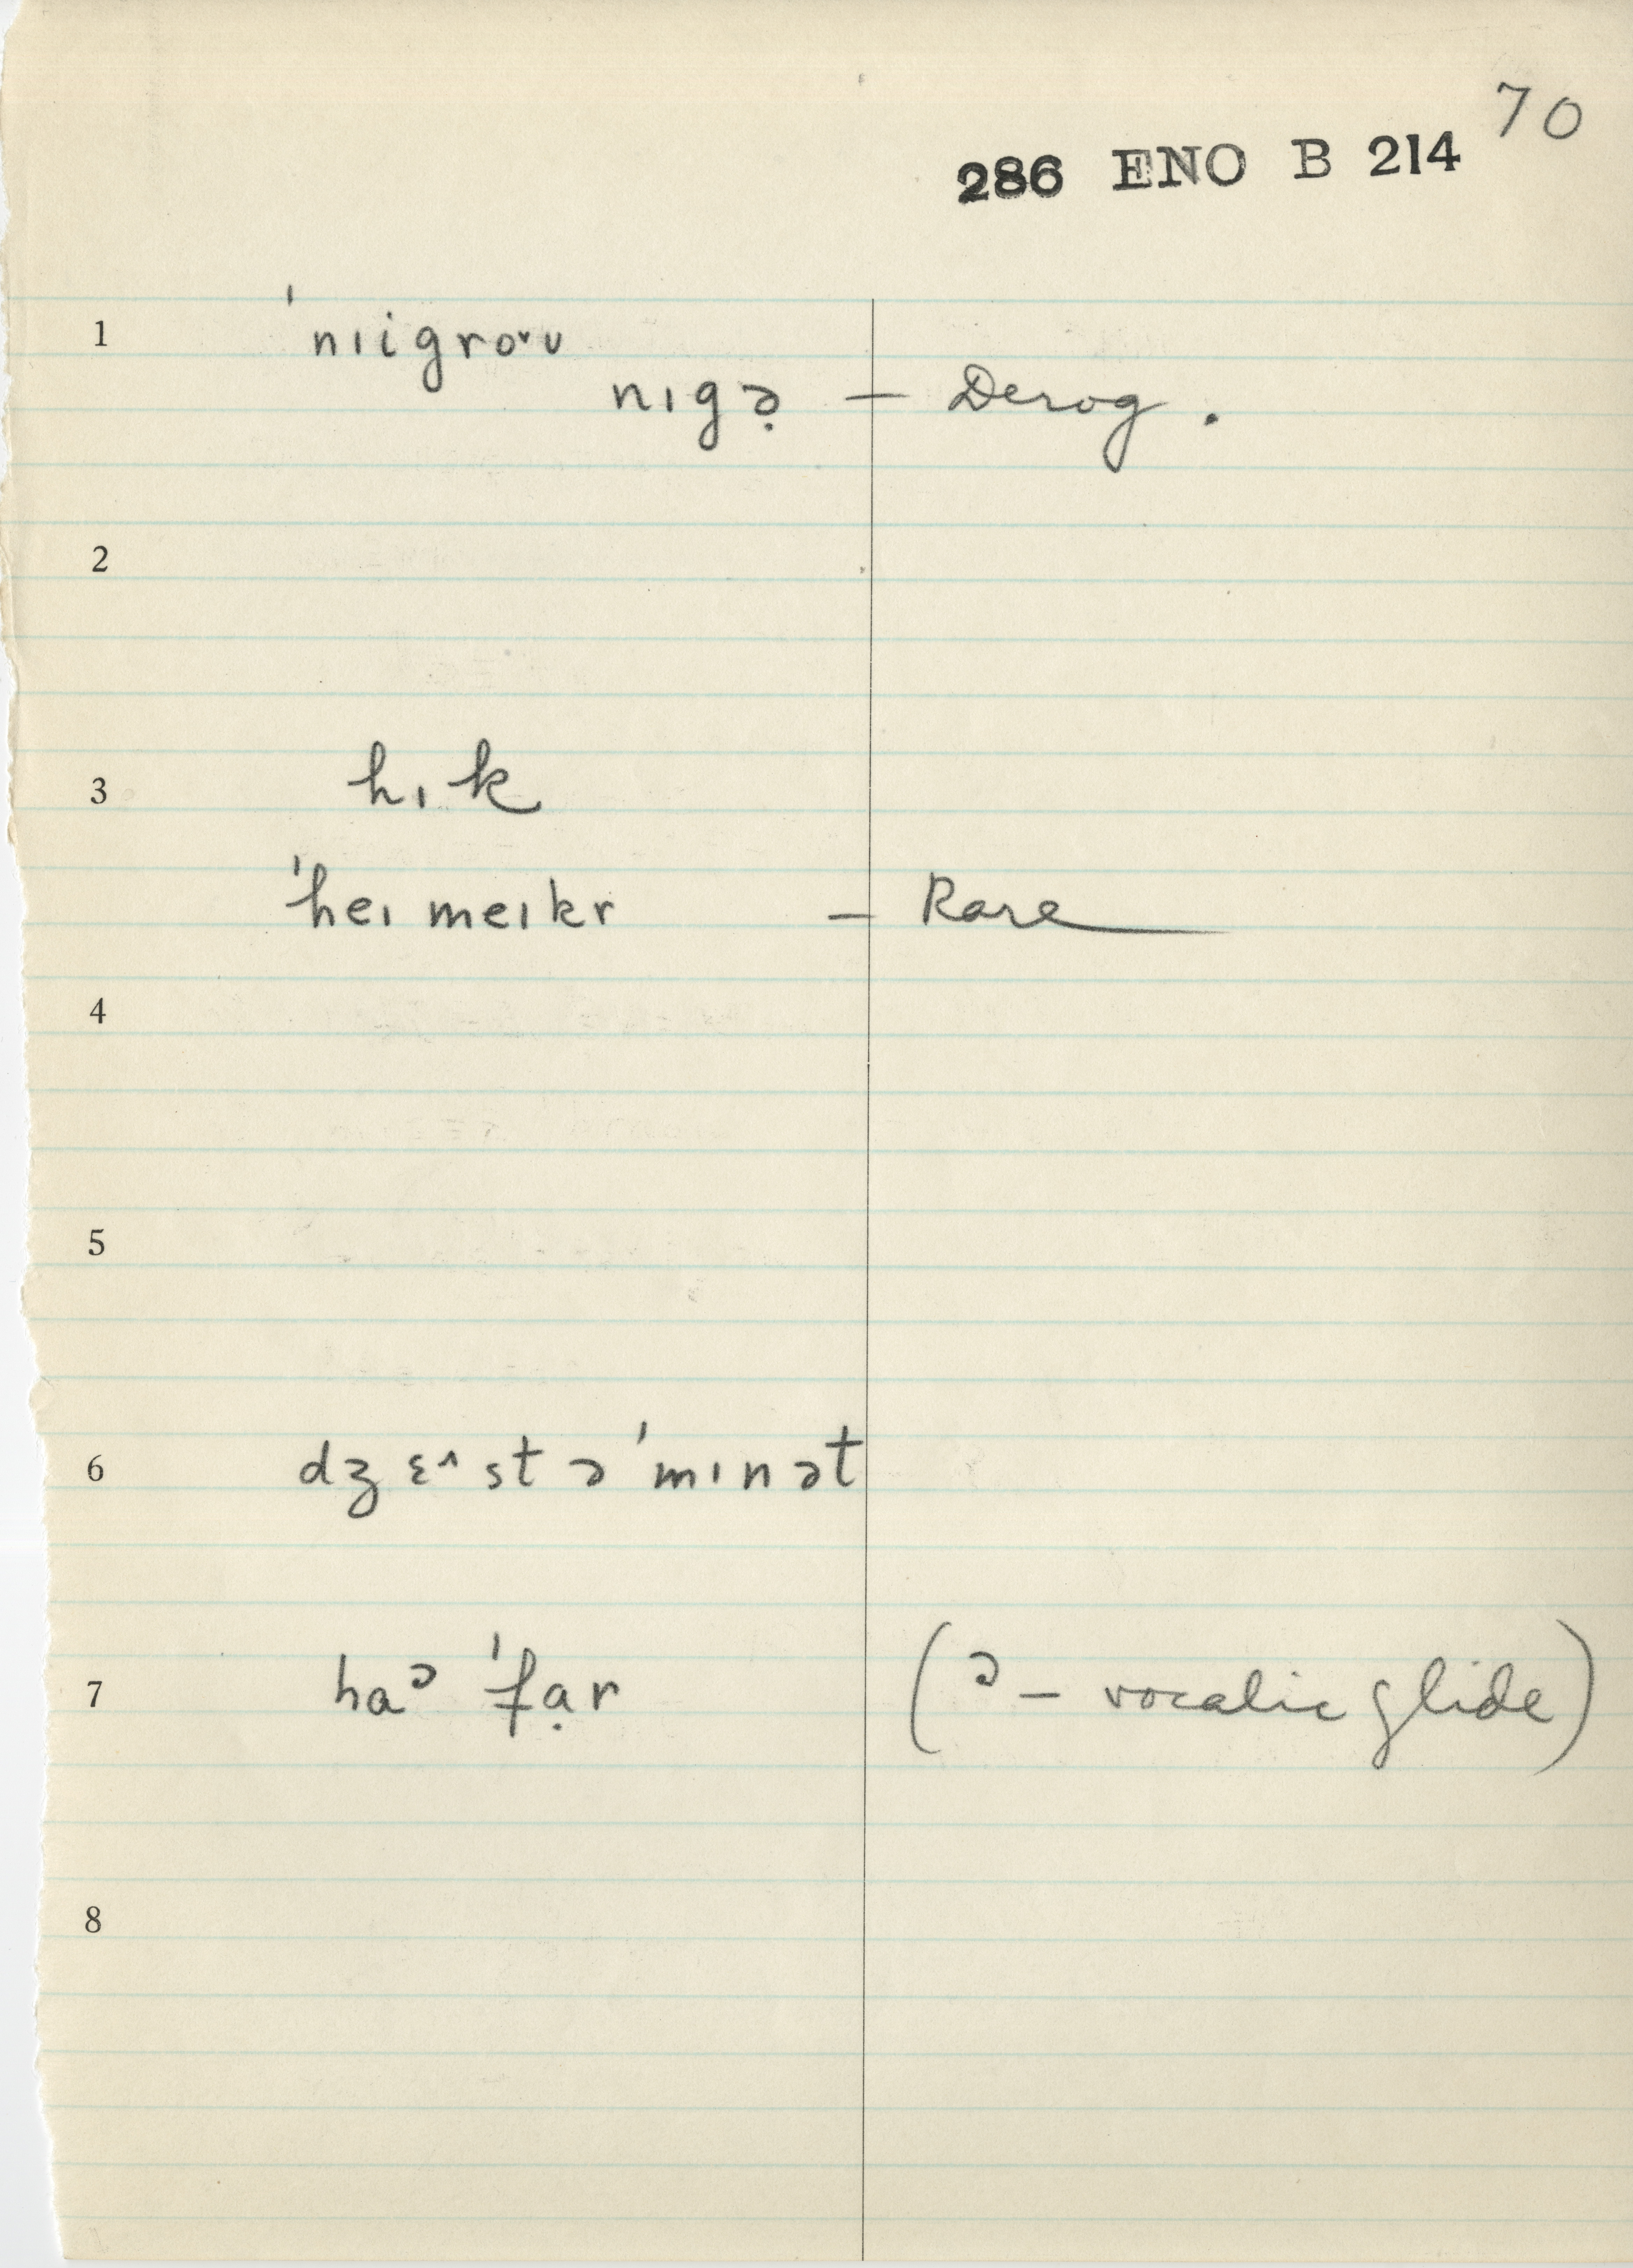 70
286 ENO B 214
1 ˈnɪigroᵛʊ
nɪgə̣ — Derog.
2
3 hɪk
ˈheɪmeɪkr — Rare
4
5
6 dʒɛ^st əˈmɪnət
7 haᵊ ˈfạr (ᵊ — vocalic glide)
8